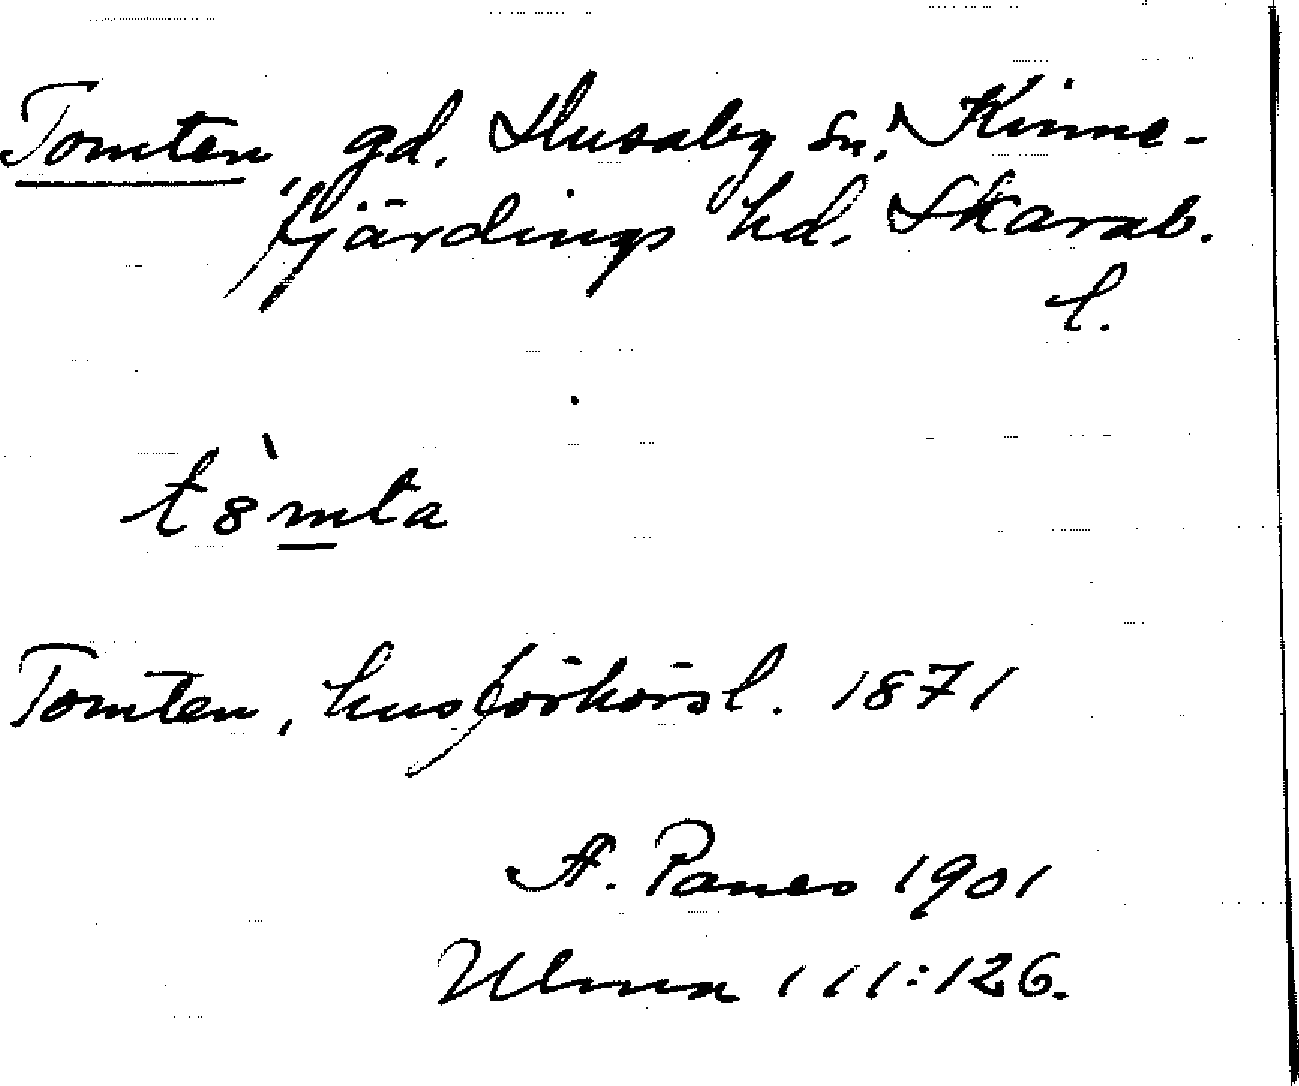 Tomten gd. Husaby sn. Kinne-
fjärdings hd. Skarab.
l.
t8̀mta
Tomten, husförhörsl. 1871
A. 1901
111:126.